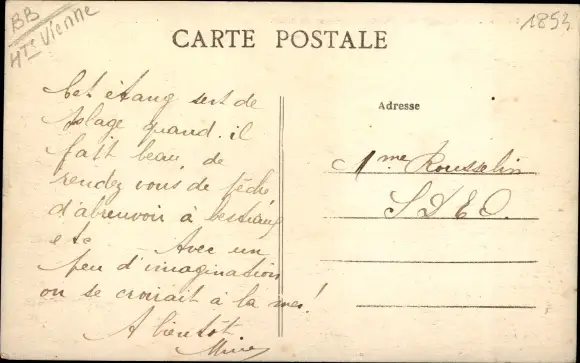 BB
Hte Vienne
1853
CARTE POSTALE
Cet étang sert de
plage quand il
fait beau, de
rendez vous de pêche
d'abreuvoir à bestiaux
etc Avec un
peu d'imagination
on se croirait à la mer!
A bientôt
Adresse
Mme Rousselin
S D E O.